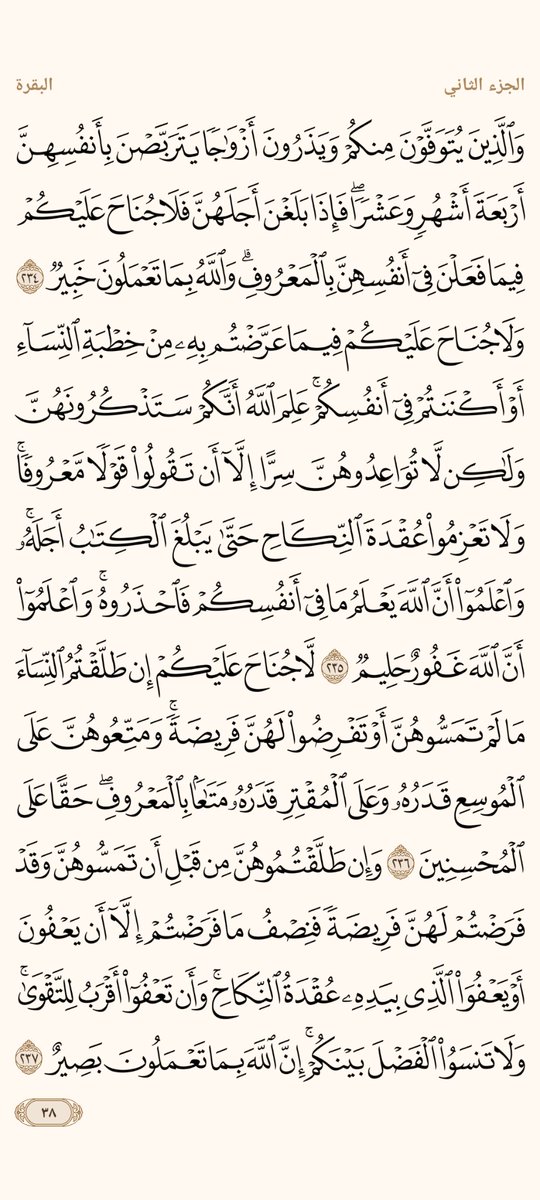 الجزء الثاني
البقرة
وَٱلَّذِينَ يُتَوَفَّوۡنَ مِنكُمۡ وَيَذَرُونَ أَزۡوَٰجٗا يَتَرَبَّصۡنَ بِأَنفُسِهِنَّ
أَرۡبَعَةَ أَشۡهُرٖ وَعَشۡرٗاۖ فَإِذَا بَلَغۡنَ أَجَلَهُنَّ فَلَا جُنَاحَ عَلَيۡكُمۡ
فِيمَا فَعَلۡنَ فِيٓ أَنفُسِهِنَّ بِٱلۡمَعۡرُوفِۗ وَٱللَّهُ بِمَا تَعۡمَلُونَ خَبِيرٞ ٢٣٤
وَلَا جُنَاحَ عَلَيۡكُمۡ فِيمَا عَرَّضۡتُم بِهِۦ مِنۡ خِطۡبَةِ ٱلنِّسَآءِ
أَوۡ أَكۡنَنتُمۡ فِيٓ أَنفُسِكُمۡۚ عَلِمَ ٱللَّهُ أَنَّكُمۡ سَتَذۡكُرُونَهُنَّ
وَلَٰكِن لَّا تُوَاعِدُوهُنَّ سِرًّا إِلَّآ أَن تَقُولُواْ قَوۡلٗا مَّعۡرُوفٗاۚ
وَلَا تَعۡزِمُواْ عُقۡدَةَ ٱلنِّكَاحِ حَتَّىٰ يَبۡلُغَ ٱلۡكِتَٰبُ أَجَلَهُۥۚ
وَٱعۡلَمُوٓاْ أَنَّ ٱللَّهَ يَعۡلَمُ مَا فِيٓ أَنفُسِكُمۡ فَٱحۡذَرُوهُۚ وَٱعۡلَمُوٓاْ
أَنَّ ٱللَّهَ غَفُورٌ حَلِيمٞ ٢٣٥ لَّا جُنَاحَ عَلَيۡكُمۡ إِن طَلَّقۡتُمُ ٱلنِّسَآءَ
مَا لَمۡ تَمَسُّوهُنَّ أَوۡ تَفۡرِضُواْ لَهُنَّ فَرِيضَةٗۚ وَمَتِّعُوهُنَّ عَلَى
ٱلۡمُوسِعِ قَدَرُهُۥ وَعَلَى ٱلۡمُقۡتِرِ قَدَرُهُۥ مَتَٰعَۢا بِٱلۡمَعۡرُوفِۖ حَقًّا عَلَى
ٱلۡمُحۡسِنِينَ ٢٣٦ وَإِن طَلَّقۡتُمُوهُنَّ مِن قَبۡلِ أَن تَمَسُّوهُنَّ وَقَدۡ
فَرَضۡتُمۡ لَهُنَّ فَرِيضَةٗ فَنِصۡفُ مَا فَرَضۡتُمۡ إِلَّآ أَن يَعۡفُونَ
أَوۡ يَعۡفُوَاْ ٱلَّذِي بِيَدِهِۦ عُقۡدَةُ ٱلنِّكَاحِۚ وَأَن تَعۡفُوٓاْ أَقۡرَبُ لِلتَّقۡوَىٰۚ
وَلَا تَنسَوُاْ ٱلۡفَضۡلَ بَيۡنَكُمۡۚ إِنَّ ٱللَّهَ بِمَا تَعۡمَلُونَ بَصِيرٌ ٢٣٧
٣٨